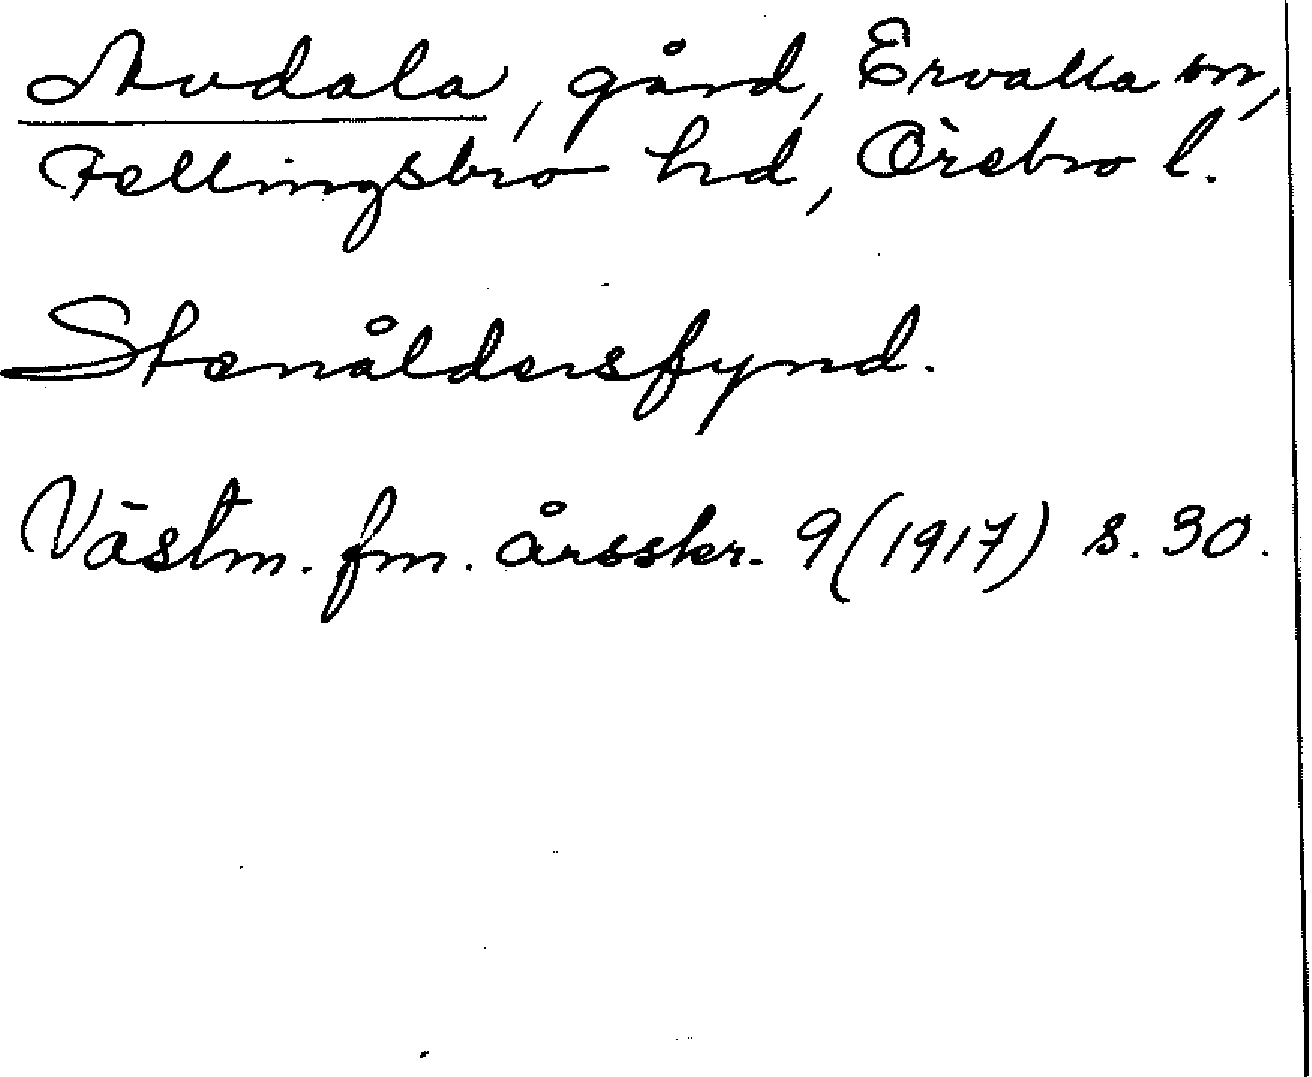 Avdala, gård, Ervalla sn,
Fellingsbro hd, Örebro l.
Stenåldersfynd.
Västm. fm. årsskr. 9 (1917) s. 30.